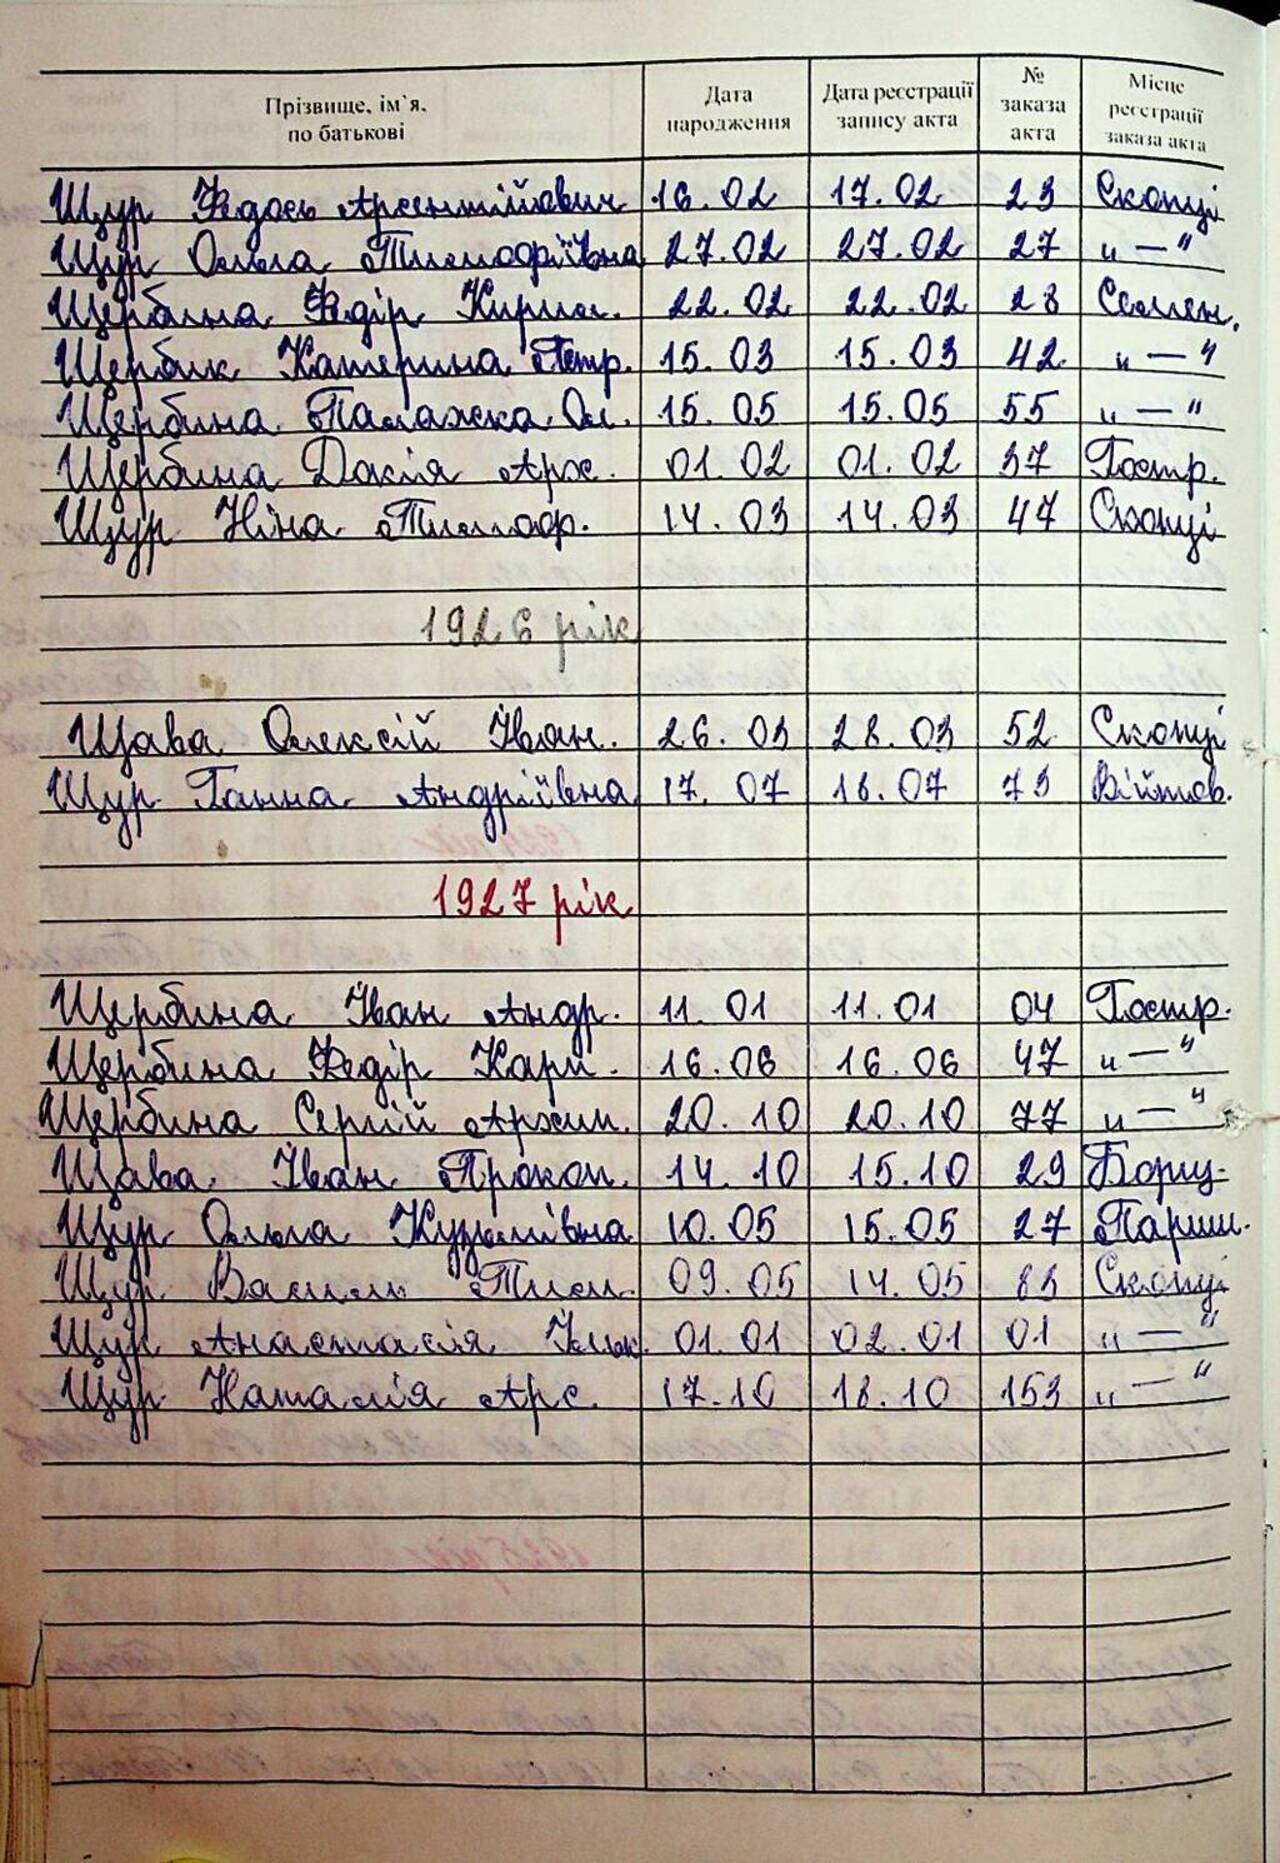 Прізвище, ім`я, по батькові | Дата народження | Дата реєстрації запису акта | № заказа акта | Місце реєстрації заказа акта
Щур Федось Арсентійович 16.02 17.02 23 Скопці
Щур Ольга Тимофіївна 27.02 27.02 27 „ — "
Щербина Федір Кирил. 22.02 22.02 28 Семен.
Щербик Катерина Петр. 15.03 15.03 42 „ — "
Щербина Палажка Ол. 15.05 15.05 55 „ — "
Щербина Докія Арх. 01.02 01.02 37 Гостр.
Щур Ніна Тимоф. 14.03 14.03 47 Скопці
1926 рік
Щава Олексій Іван. 26.03 28.03 52 Скопці
Щур Ганна Андріївна 17.07 18.07 73 Війтов.
1927 рік
Щербина Іван Андр. 11.01 11.01 04 Гостр.
Щербина Федір Карп. 16.06 16.06 47 „ — "
Щербина Сергій Архип. 20.10 20.10 77 „ — "
Щава Іван Прокоп. 14.10 15.10 29 Борщ.
Щур Ольга Кузьмівна 10.05 15.05 27 Париш.
Щур Василь Тим. 09.05 14.05 83 Скопці
Щур Анастасія Ілльк. 01.01 02.01 01 „ — "
Щур Наталія Арс. 17.10 18.10 153 „ — "